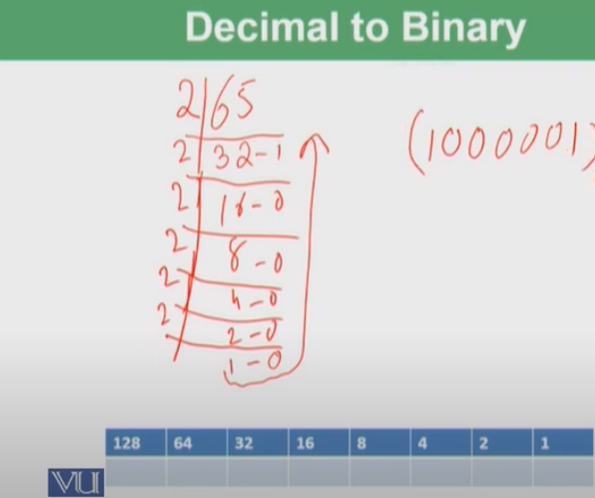 Decimal to Binary
2 65
2 32-1
2 16-0
2 8-0
2 4-0
2 2-0
1-0
(1000001)
128 64 32 16 8 4 2 1
VU